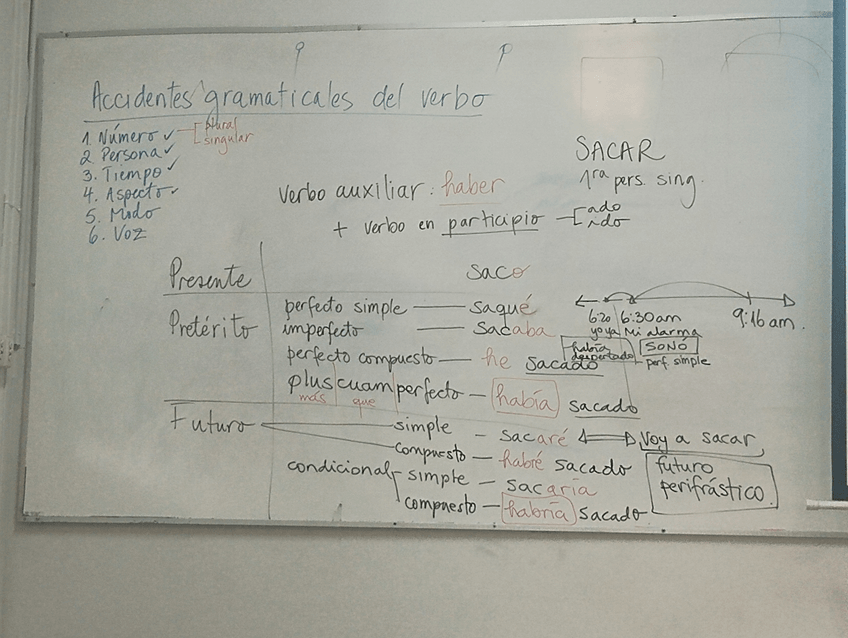 Accidentes gramaticales del verbo
1. Número ✓ plural
singular
2. Persona ✓
3. Tiempo ✓
4. Aspecto ✓
5. Modo
6. Voz
SACAR
1ra pers. sing.
verbo auxiliar: haber
+ verbo en participio ado
ido
Presente saco
Pretérito
perfecto simple — saqué
imperfecto — sacaba
perfecto compuesto — he sacado
plus|cuam|perfecto — había sacado
más que
6:20 6:30am 9:16 am.
yo ya Mi alarma
había despertado
SONÓ
perf. simple
Futuro simple — sacaré ⟺ Voy a sacar
compuesto — habré sacado
futuro perifrástico
condicional simple — sacaría
compuesto — habría sacado